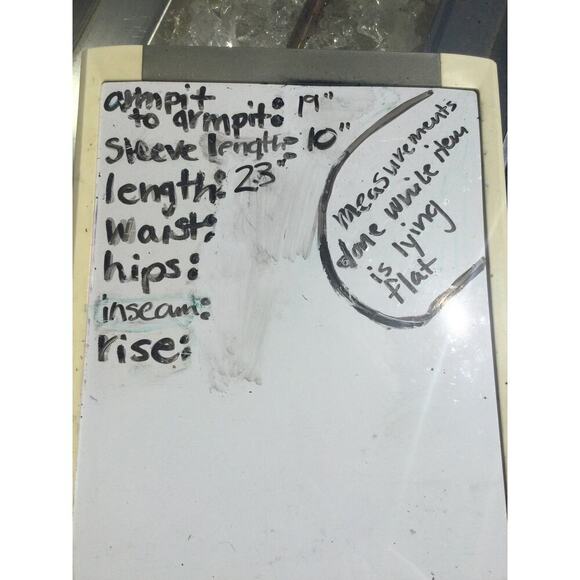 armpit
to armpit: 19"
Sleeve length: 10"
length: 23"
Waist:
hips:
inseam:
rise:
measurements
done while item
is lying
flat